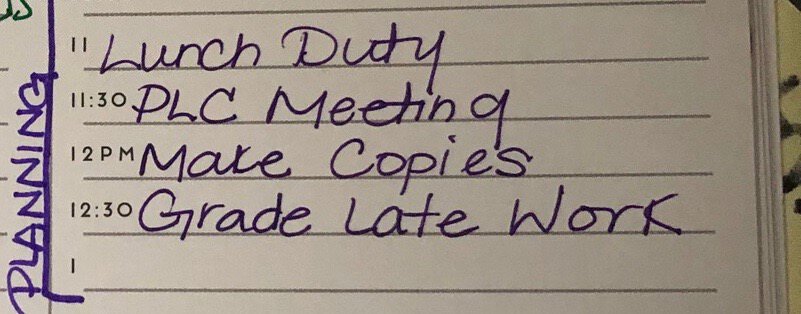 11 Lunch Duty
11:30 PLC Meeting
12PM Make Copies
12:30 Grade Late Work
1
PLANNING